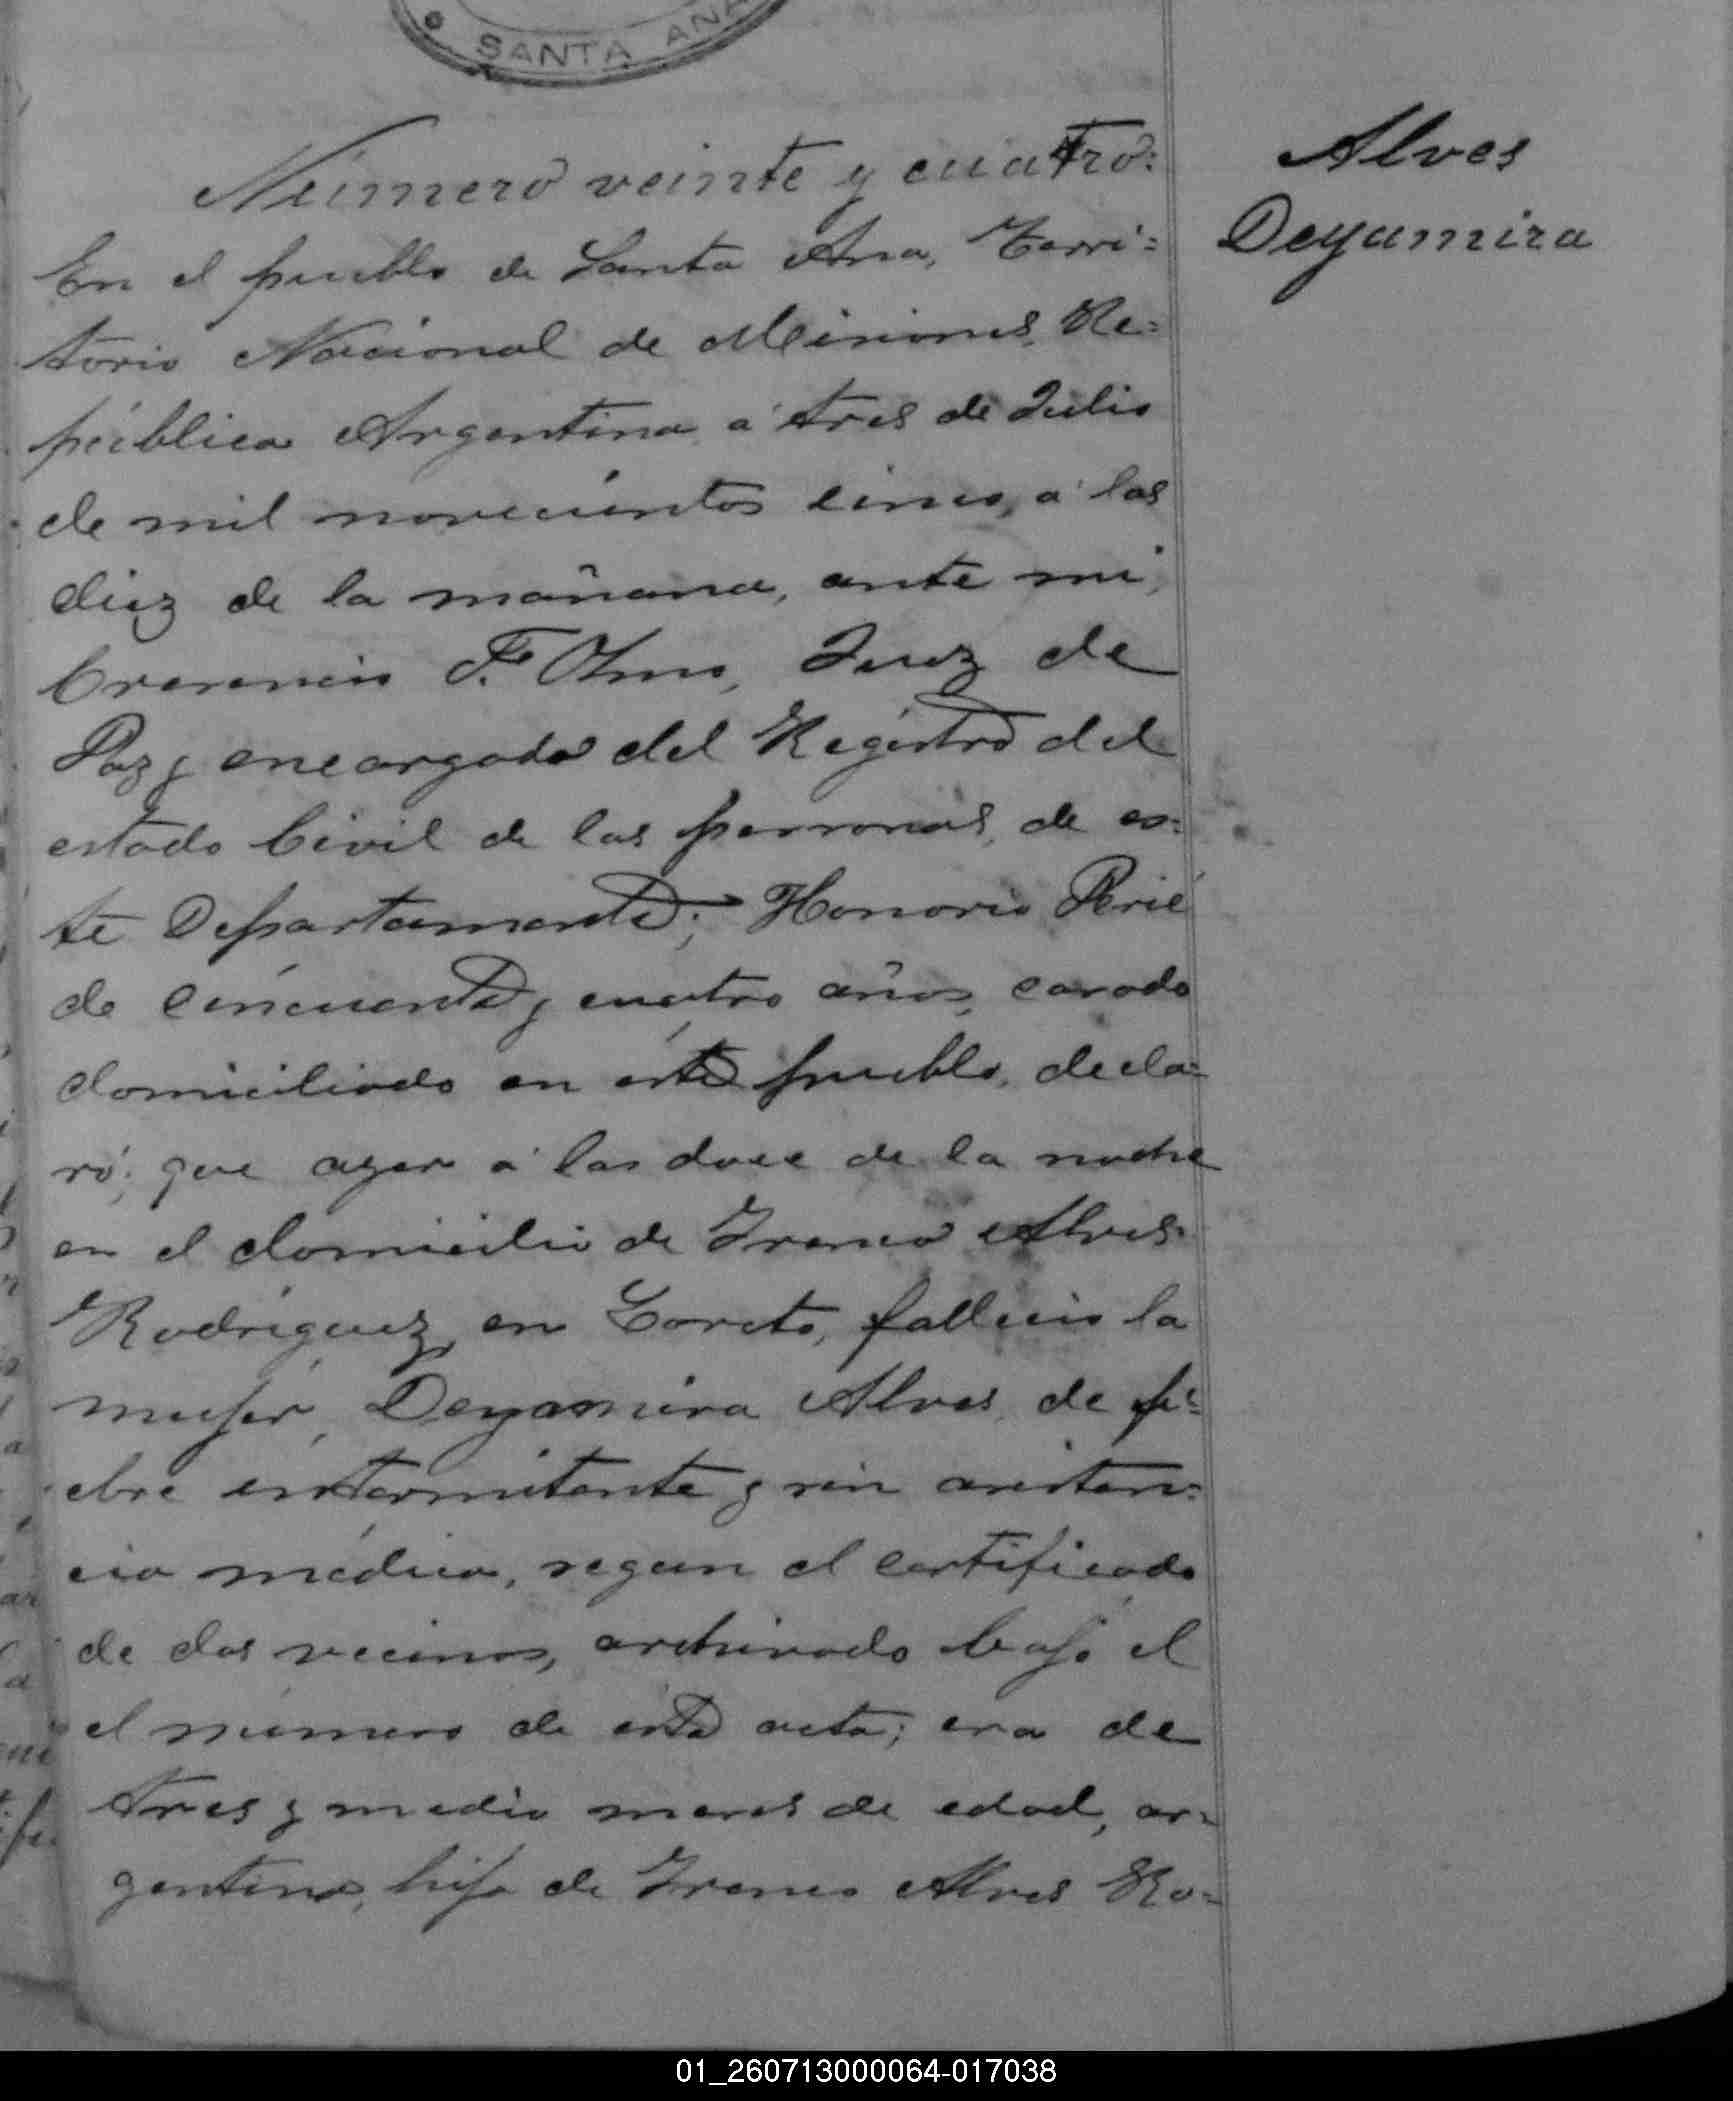 SANTA ANA
Número veinte y cuatro:
Alves
Deyamira
En el pueblo de Santa Ana, Terri=
torio Nacional de Misiones, Re=
pública Argentina á tres de Julio
de mil novecientos cinco, á las
diez de la mañana, ante mi,
Cresencio F. Olmo, Juez de
Paz y encargado del Registro del
estado Civil de las personas, de es=
te Departamento; Honorio Perié
de cincuenta y cuatro años, casado
domiciliado en éste pueblo, decla=
ró; que ayer á las doce de la noche
en el domicilio de Ireneo Alves
Rodríguez, en Loreto, falleció la
mujer, Deyamira Alves, de fi=
ebre intermitente y sin asisten=
cia médica, segun el certificado
de dos vecinos, archivado bajo el
el número de ésta acta; era de
tres y medio meses de edad, ar=
gentina, hija de Ireneo Alves Ro=
01_260713000064-017038